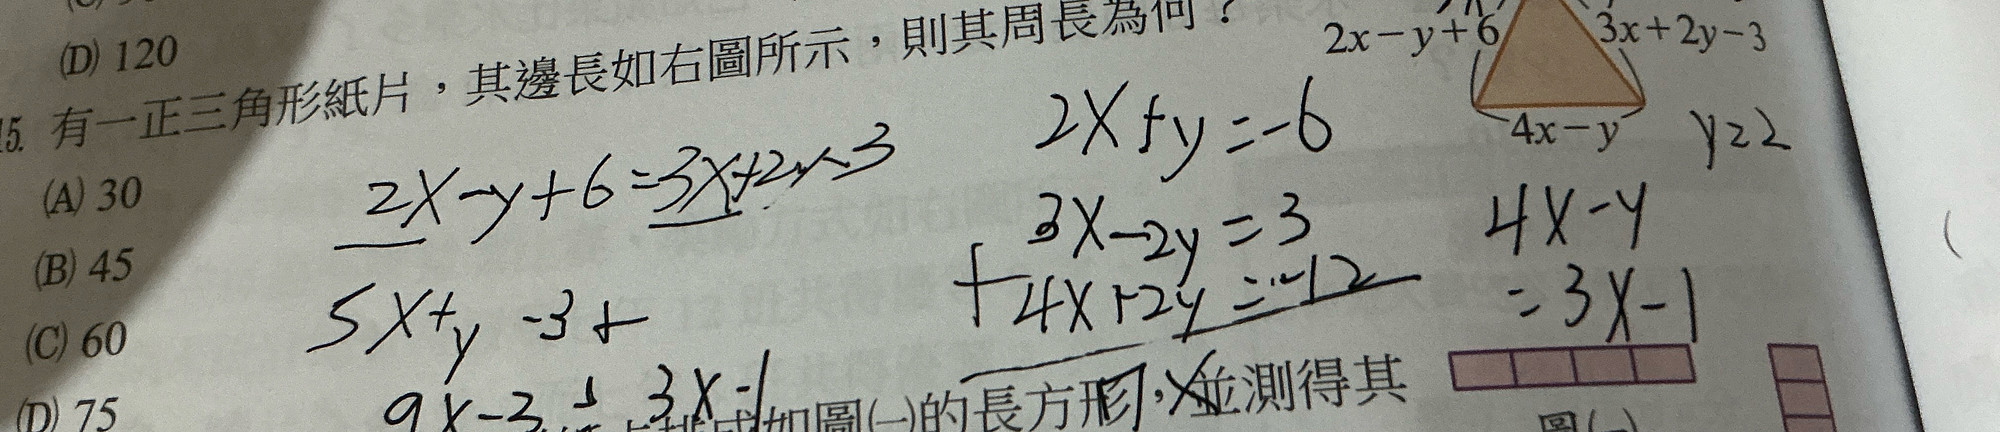 (D) 120
15. 有一正三角形紙片，其邊長如右圖所示，則其周長為何？
2x−y+6
3x+2y−3
4x−y
(A) 30
(B) 45
(C) 60
(D) 75
2x-y+6=3x+2y-3
5x+y -3+
9x-3
3x-1
2x+y=-6
3x-2y=3
+4x+2y=-12
y=2
4x-y
=3x-1
如圖㈠的長方形，並測得其
圖㈠